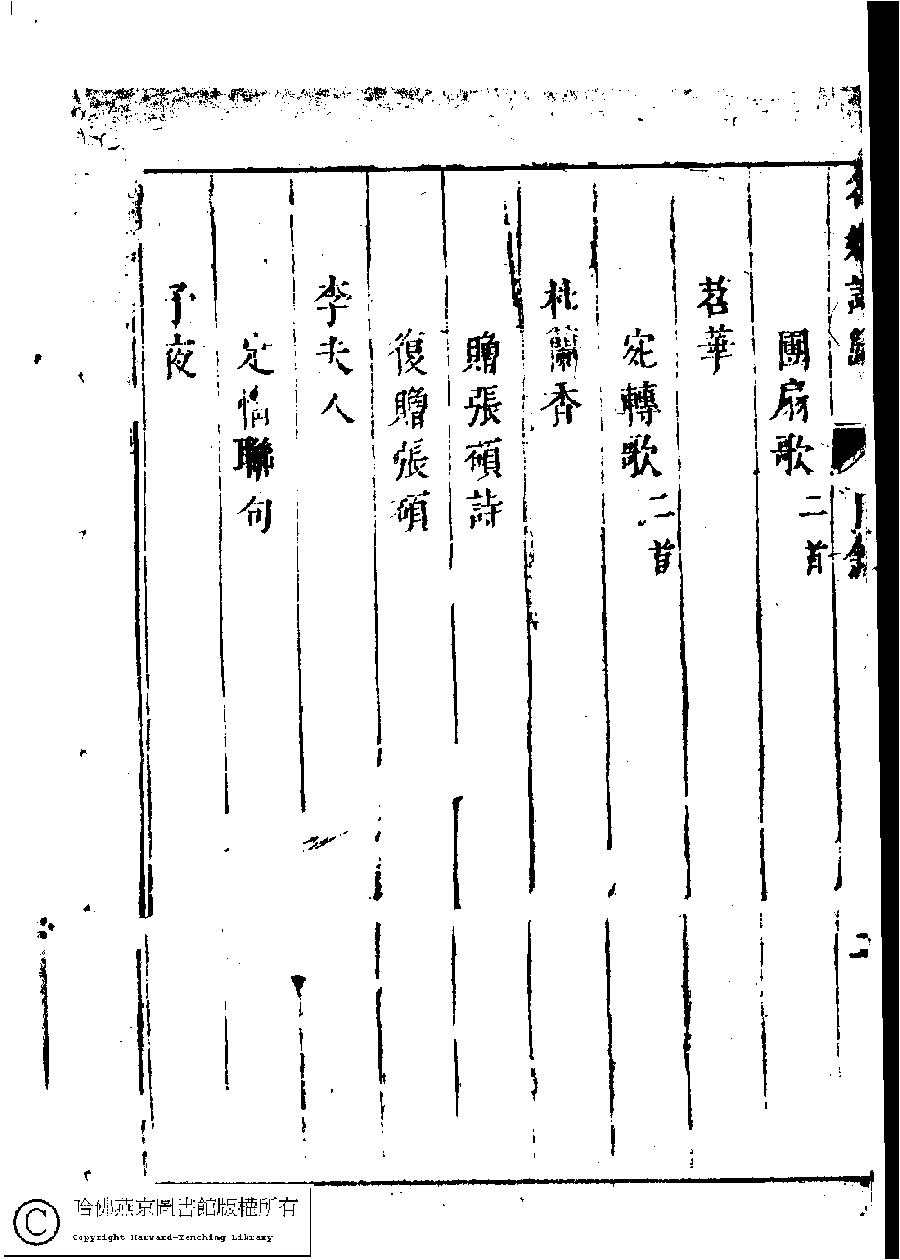 名媛詩歸
目錄
團扇歌二首
苕華
宛轉歌二首
杜蘭香
贈張碩詩
復贈張碩
李夫人
定情聯句
子夜
哈佛燕京圖書館版權所有
Copyright Harvard-Yenching Library